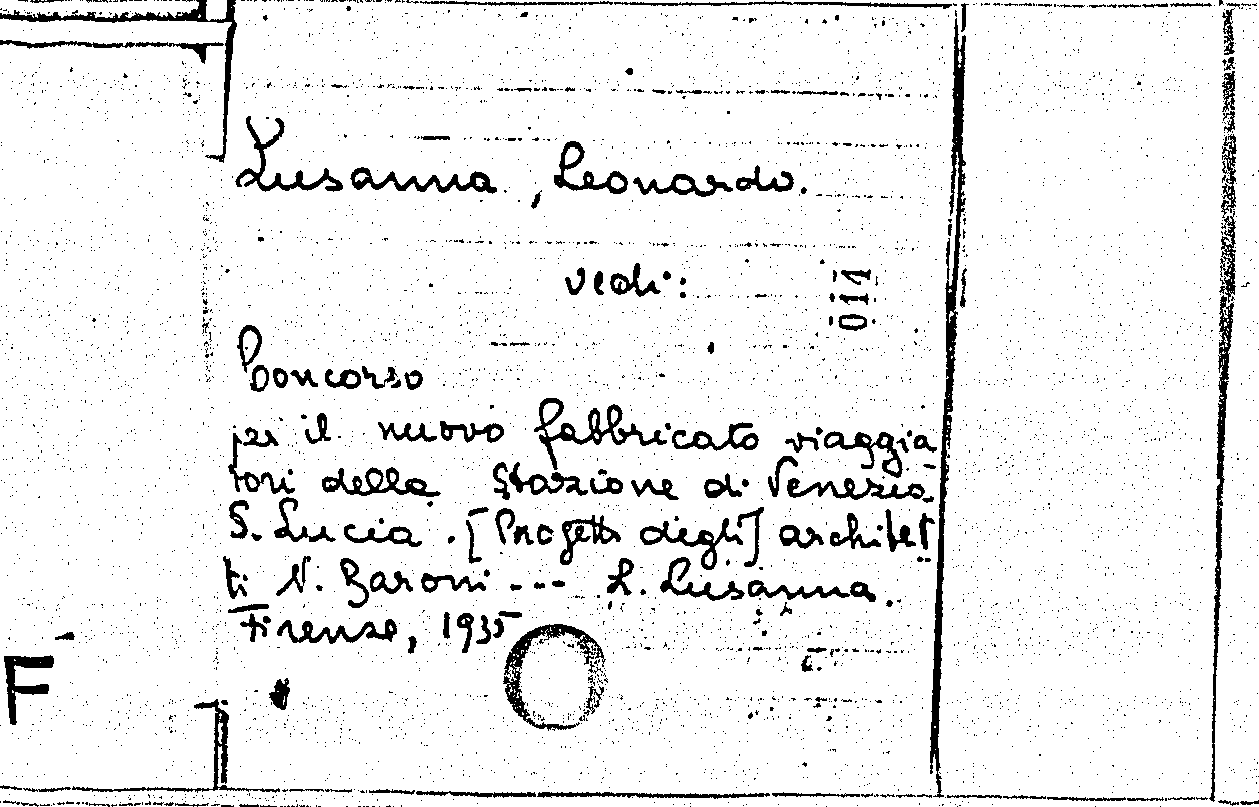 Lusanna, Leonardo.
vedi:
014
Concorso
per il nuovo fabbricato viaggia-
tori della Stazione di Venezia
S. Lucia. [Progetti degli] architet-
ti N. Baroni --- L. Lusanna.
Firenze, 1935
F